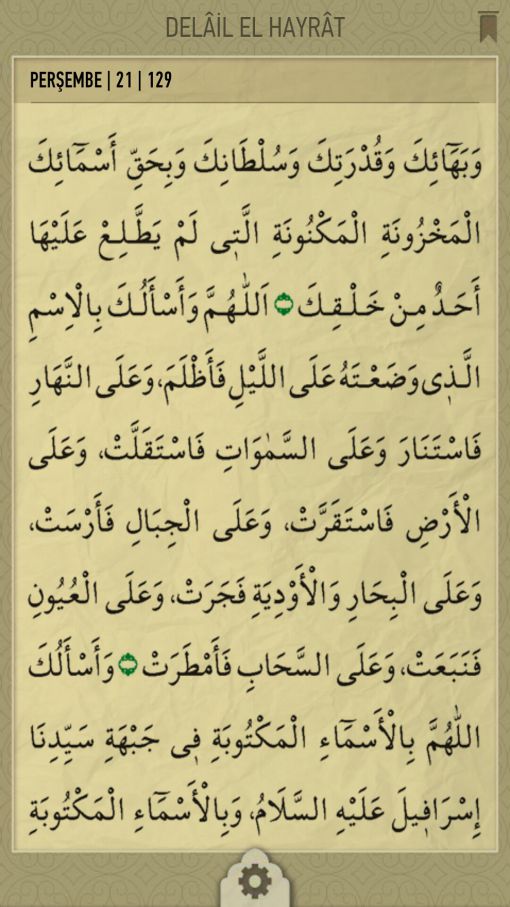 DELÂİL EL HAYRÂT
PERŞEMBE | 21 | 129
وَبَهَٓائِكَ وَقُدْرَتِكَ وَسُلْطَانِكَ وَبِحَقِّ أَسْمَٓائِكَ
الْمَخْزُونَةِ الْمَكْنُونَةِ الَّتِى لَمْ يَطَّلِعْ عَلَيْهَا
أَحَدٌ مِنْ خَلْقِكَ ۝ اَللّٰهُمَّ وَأَسْأَلُكَ بِالْاِسْمِ
الَّذِى وَضَعْتَهُ عَلَى اللَّيْلِ فَأَظْلَمَ، وَعَلَى النَّهَارِ
فَاسْتَنَارَ وَعَلَى السَّمٰوَاتِ فَاسْتَقَلَّتْ، وَعَلَى
الْأَرْضِ فَاسْتَقَرَّتْ، وَعَلَى الْجِبَالِ فَأَرْسَتْ،
وَعَلَى الْبِحَارِ وَالْأَوْدِيَةِ فَجَرَتْ، وَعَلَى الْعُيُونِ
فَنَبَعَتْ، وَعَلَى السَّحَابِ فَأَمْطَرَتْ ۝ وَأَسْأَلُكَ
اللّٰهُمَّ بِالْأَسْمَٓاءِ الْمَكْتُوبَةِ فِى جَبْهَةِ سَيِّدِنَا
إِسْرَافِيلَ عَلَيْهِ السَّلَامُ، وَبِالْأَسْمَٓاءِ الْمَكْتُوبَةِ